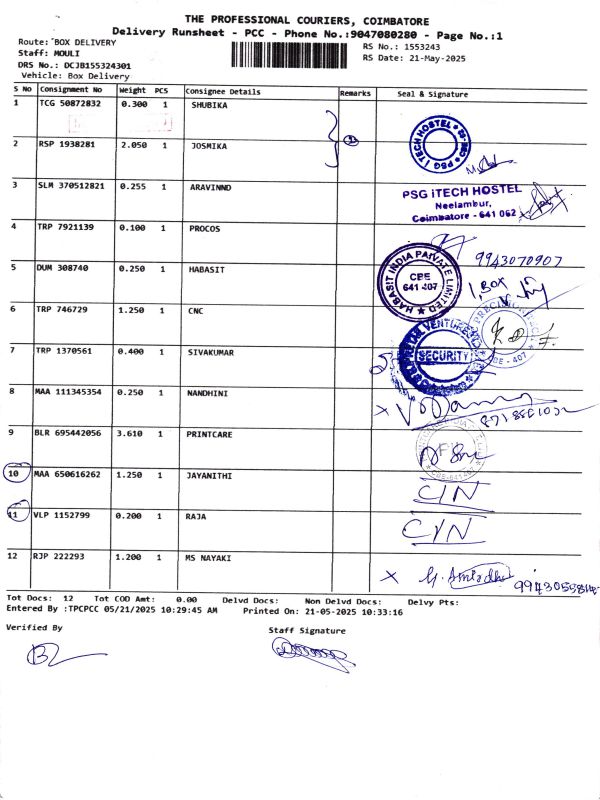 THE PROFESSIONAL COURIERS, COIMBATORE
Delivery Runsheet - PCC - Phone No.:9047080280 - Page No.:1
Route: BOX DELIVERY
Staff: MOULI
DRS No.: DCJB155324301
Vehicle: Box Delivery
RS No.: 1553243
RS Date: 21-May-2025
S No Consignment No Weight PCS Consignee Details Remarks Seal & Signature
1 TCG 50872832 0.300 1 SHUBIKA
2 RSP 1938281 2.050 1 JOSMIKA
PSG iTECH HOSTEL
3 SLM 370512821 0.255 1 ARAVINND
PSG iTECH HOSTEL
Neelambur,
Coimbatore - 641 062
4 TRP 7921139 0.100 1 PROCOS
9943070907
5 DUM 308740 0.250 1 HABASIT
HABASIT INDIA PRIVATE LIMITED
CBE
641 407
1, Box
6 TRP 746729 1.250 1 CNC
7 TRP 1370561 0.400 1 SIVAKUMAR
SECURITY
8 MAA 111345354 0.250 1 NANDHINI
9 BLR 695442056 3.610 1 PRINTCARE
10 MAA 650616262 1.250 1 JAYANITHI
C/N
11 VLP 1152799 0.200 1 RAJA
C/N
12 RJP 222293 1.200 1 MS NAYAKI
Tot Docs: 12 Tot COD Amt: 0.00 Delvd Docs: Non Delvd Docs: Delvy Pts:
Entered By :TPCPCC 05/21/2025 10:29:45 AM Printed On: 21-05-2025 10:33:16
Verified By
Staff Signature